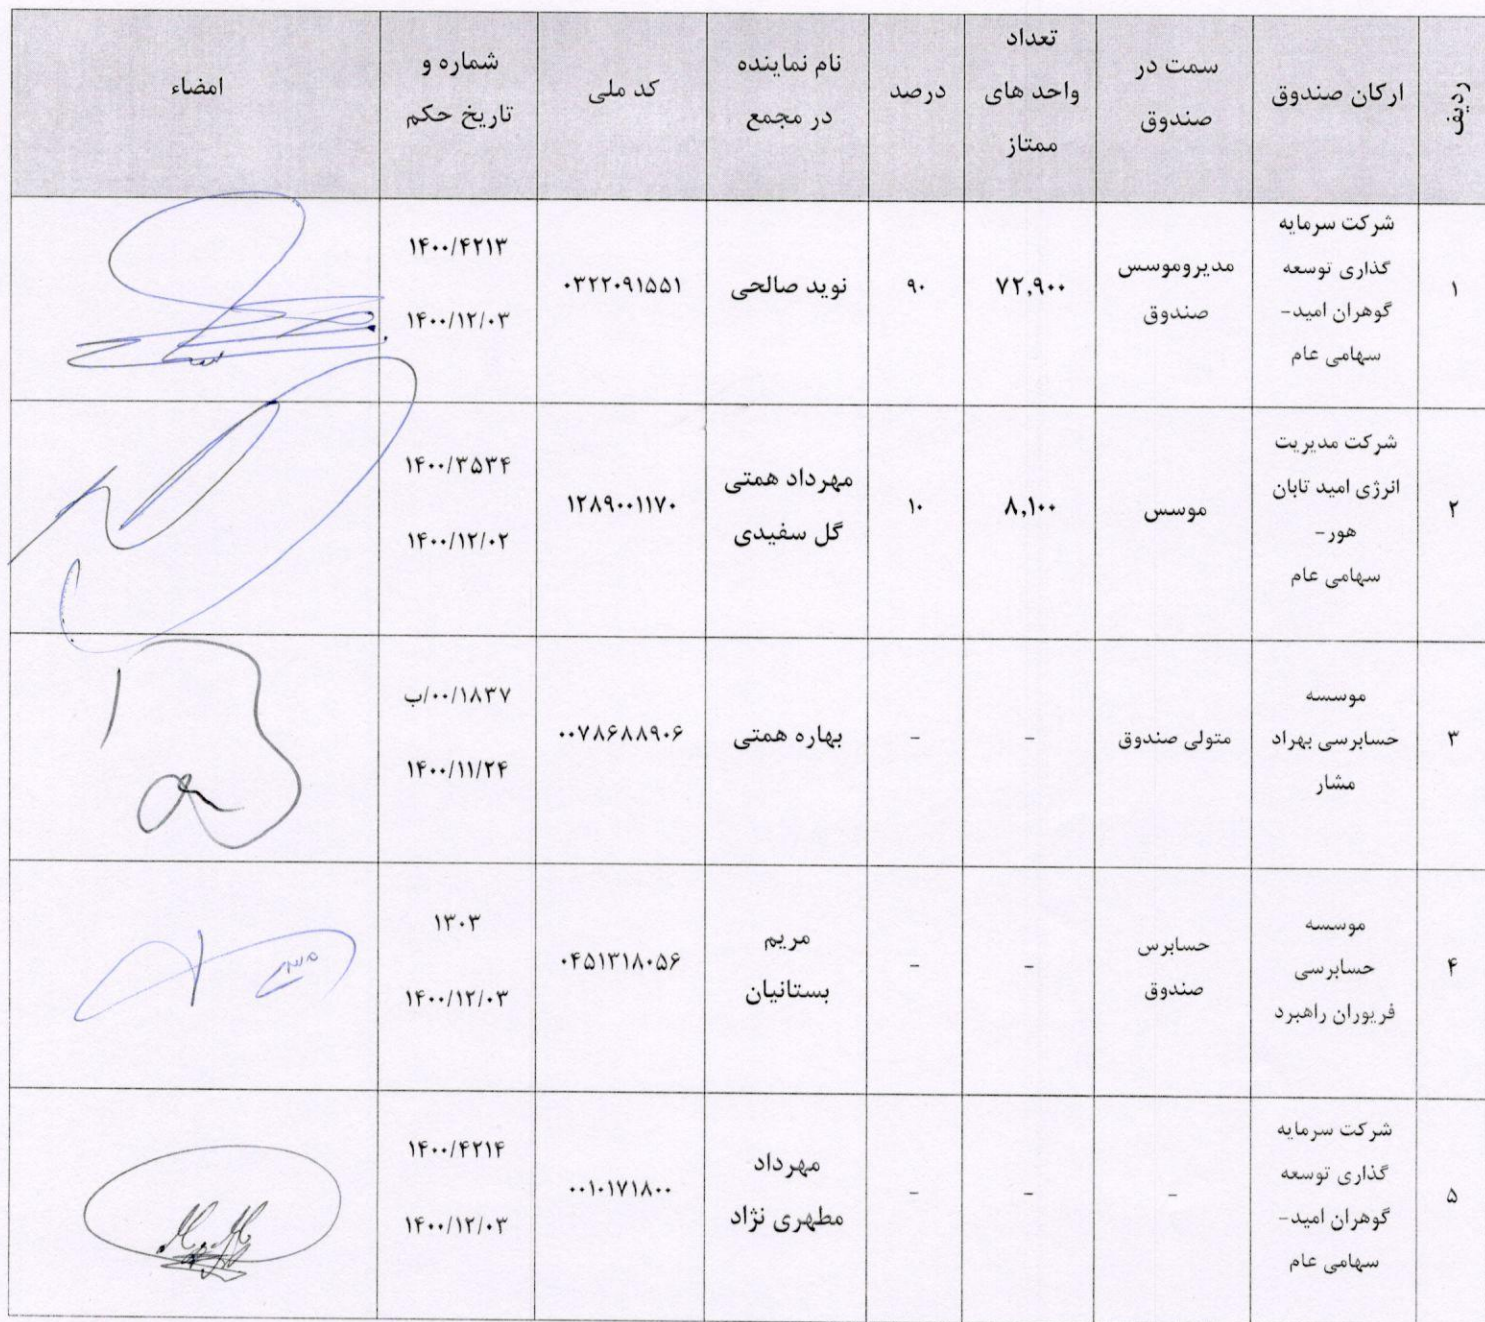 ردیف
ارکان صندوق
سمت در
صندوق
تعداد
واحد های
ممتاز
درصد
نام نماینده
در مجمع
کد ملی
شماره و
تاریخ حکم
امضاء
۱
شرکت سرمایه
گذاری توسعه
گوهران امید-
سهامی عام
مدیروموسس
صندوق
۷۲,۹۰۰
۹۰
نوید صالحی
۰۳۲۲۰۹۱۵۵۱
۱۴۰۰/۴۲۱۳
۱۴۰۰/۱۲/۰۳
۲
شرکت مدیریت
انرژی امید تابان
هور-
سهامی عام
موسس
۸,۱۰۰
۱۰
مهرداد همتی
گل سفیدی
۱۲۸۹۰۰۱۱۷۰
۱۴۰۰/۳۵۳۴
۱۴۰۰/۱۲/۰۲
۳
موسسه
حسابرسی بهراد
مشار
متولی صندوق
-
-
بهاره همتی
۰۰۷۸۶۸۸۹۰۶
۰۰/۱۸۳۷/ب
۱۴۰۰/۱۱/۲۴
۴
موسسه
حسابرسی
فریوران راهبرد
حسابرس
صندوق
-
-
مریم
بستانیان
۰۴۵۱۳۱۸۰۵۶
۱۳۰۳
۱۴۰۰/۱۲/۰۳
۵
شرکت سرمایه
گذاری توسعه
گوهران امید-
سهامی عام
-
-
-
مهرداد
مطهری نژاد
۰۰۱۰۱۷۱۸۰۰
۱۴۰۰/۴۲۱۴
۱۴۰۰/۱۲/۰۳